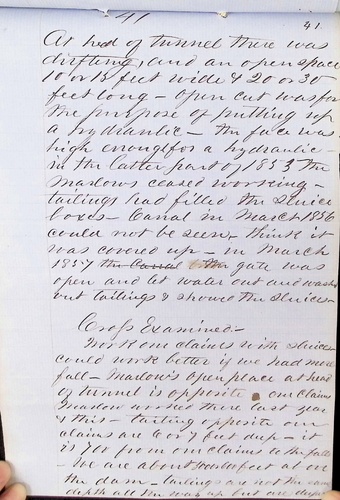 41
41
At head of tunnel there was
drifting, and an open space
10 or 15 feet wide & 20 or 30
feet long - open cut was for
the purpose of putting up
a hydraulic - the face was
high enough for a hydraulic -
in the latter part of 1853 the
Marlows ceased working -
tailings had filled the sluice
boxes - Canal in March 1856
could not be seen - think it
was covered up - in March
1857 the Canal the gate was
open and let water out and washed
out tailings & showed the sluices -
Cross Examined -
Work our claims with sluices
could work better if we had more
fall - Marlow's open place at head
of tunnel is opposite our claims
Marlow worked there last year
& this - tailing opposite our
claims are 6 or 7 feet deep - it
is from our claims to the falls
We are about feet at on
the dam - tailings are not the same
depth all the way up but are